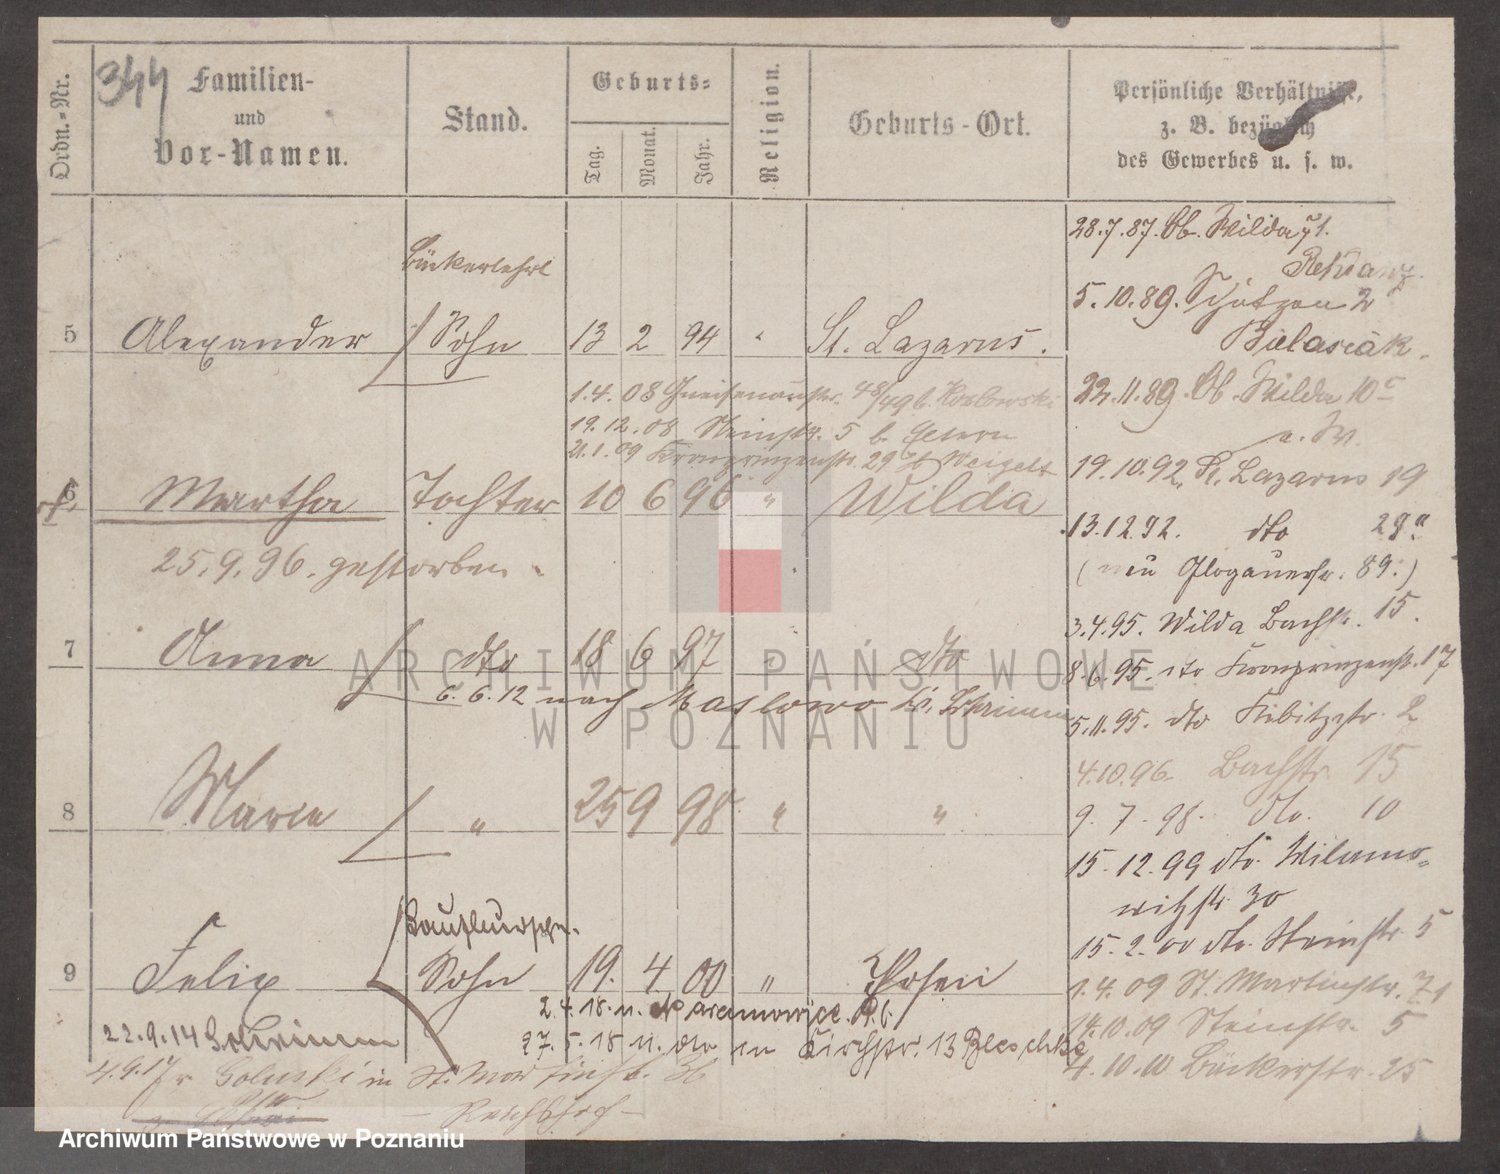 344
Ordn.-Nr.
Familien-
und
Vor-Namen.
Stand.
Geburts-
Tag. Monat. Jahr.
Religion.
Geburts-Ort.
Persönliche Verhältnisse,
z. B. bezüglich
des Gewerbes u. s. w.
Bäckerlehrl
5 Alexander Sohn 13 2 94 " St. Lazarus.
1.4.08 Gneisenaustr. 48/49 b. Koslowski
19.12.08 Steinstr. 5 b.
21.1.09 Kronprinzenstr. 29 Weigelt
6 Martha Tochter 10 6 96 " Wilda
25.9.96. gestorben.
7 Anna dto 18 6 97 " dto
6.6.12 nach Maslowo Kr. Schrimm
8 Marie " 25 9 98 " "
Laufbursche.
9 Felix Sohn 19. 4 00 " Posen
2.4.18. n. Naramowice P.b.
22.9.14 Schrimm
27.5.18 n. dto in Kirchstr. 13 Bleschke
4.9.17 v. in St. Martinstr. 36
28.7.87. Ob. Wilda 71.
Rehdanz.
5.10.89. Schützen 2
Bielasiak.
22.11.89. Ob. Wilda 10c
a. W.
19.10.92. St. Lazarus 19
13.12.92. dto 29a
(neu Glogauerstr. 89.)
3.4.95. Wilda Bachstr. 15.
8.6.95. dto Kronprinzenstr. 17
5.11.95. dto Kibitzstr. 2
4.10.96. Bachstr. 15
9.7.98. dto. 10
15.12.99 dto. Wilamo-
witzstr. 30
15.2.00 dto. Steinstr. 5
1.4.09 St. Martinstr. 71
14.10.09 Steinstr. 5
4.10.10 Bäckerstr. 25
ARCHIWUM PAŃSTWOWE
W POZNANIU
Archiwum Państwowe w Poznaniu